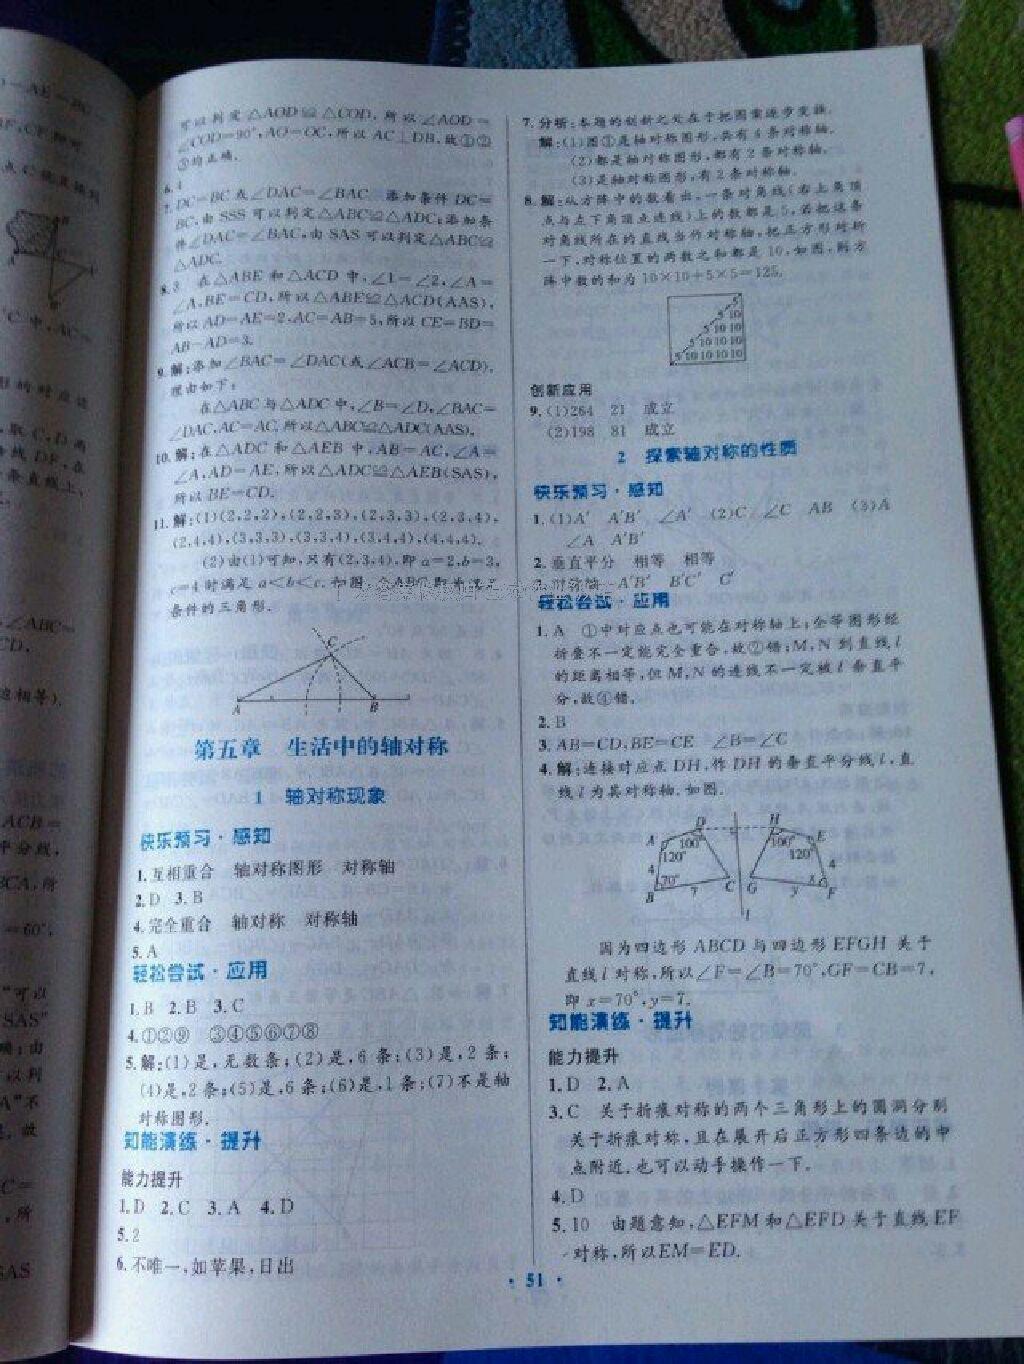 可以判定△AOD≌△COD,所以∠AOD=
∠COD=90°,AO=OC,所以 AC⊥DB,故①②
③均正确.
6. 4
7. DC=BC 或∠DAC=∠BAC 添加条件 DC=
BC,由 SSS 可以判定△ABC≌△ADC;添加条
件∠DAC=∠BAC,由 SAS 可以判定△ABC≌
△ADC.
8. 3 在△ABE 和△ACD 中,∠1=∠2,∠A=
∠A,BE=CD,所以△ABE≌△ACD(AAS),
所以 AD=AE=2,AC=AB=5,所以 CE=BD=
AB-AD=3.
9. 解:添加∠BAC=∠DAC(或∠ACB=∠ACD),
理由如下:
在△ABC 与△ADC 中,∠B=∠D,∠BAC=
∠DAC,AC=AC,所以△ABC≌△ADC(AAS).
10. 解:在△ADC 和△AEB 中,AB=AC,∠A=
∠A,AD=AE,所以△ADC≌△AEB(SAS),
所以 BE=CD.
11. 解:(1)(2,2,2),(2,2,3),(2,3,3),(2,3,4),
(2,4,4),(3,3,3),(3,3,4),(3,4,4),(4,4,4).
(2)由(1)可知,只有(2,3,4),即 a=2,b=3,
c=4 时满足 a<b<c.如图,△ABC 即为满足
条件的三角形.
C
A B
第五章 生活中的轴对称
1 轴对称现象
快乐预习·感知
1. 互相重合 轴对称图形 对称轴
2. D 3. B
4. 完全重合 轴对称 对称轴
5. A
轻松尝试·应用
1. B 2. B 3. C
4. ①②⑨ ③④⑤⑥⑦⑧
5. 解:(1)是,无数条;(2)是,6 条;(3)是,2 条;
(4)是,2 条;(5)是,6 条;(6)是,1 条;(7)不是轴
对称图形.
知能演练·提升
能力提升
1. D 2. C 3. A 4. D
5. 2
6. 不唯一,如苹果,日出
7. 分析:本题的创新之处在于把图案逐步变换.
解:(1)图①是轴对称图形,共有 4 条对称轴.
(2)都是轴对称图形,都有 2 条对称轴.
(3)是轴对称图形,有 2 条对称轴.
8. 解:从方阵中的数看出,一条对角线(右上角顶
点与左下角顶点连线)上的数都是 5,若把这条
对角线所在的直线当作对称轴,把正方形对折
一下,对称位置的两数之和都是 10,如图,则方
阵中数的和为 10×10+5×5=125.
5
5 10
5 10 10
5 10 10 10
5 10 10 10 10
创新应用
9. (1)264 21 成立
(2)198 81 成立
2 探索轴对称的性质
快乐预习·感知
1. (1)A′ A′B′ ∠A′ (2)C ∠C AB (3)A
∠A A′B′
2. 垂直平分 相等 相等
3. 对称轴 A′B′ B′C′ C′
轻松尝试·应用
1. A ①中对应点也可能在对称轴上;全等图形经
折叠不一定能完全重合,故②错;M,N 到直线 l
的距离相等,但 M,N 的连线不一定被 l 垂直平
分,故④错.
2. B
3. AB=CD,BE=CE ∠B=∠C
4. 解:连接对应点 DH,作 DH 的垂直平分线 l,直
线 l 为其对称轴.如图.
D H
A 100° 100° E
120° 120°
4 4
70° x
B 7 C G y F
l
因为四边形 ABCD 与四边形 EFGH 关于
直线 l 对称,所以∠F=∠B=70°,GF=CB=7,
即 x=70°,y=7.
知能演练·提升
能力提升
1. D 2. A
3. C 关于折痕对称的两个三角形上的圆洞分别
关于折痕对称,且在展开后正方形四条边的中
点附近.也可以动手操作一下.
4. D
5. 10 由题意知,△EFM 和△EFD 关于直线 EF
对称,所以EM=ED.
· 51 ·